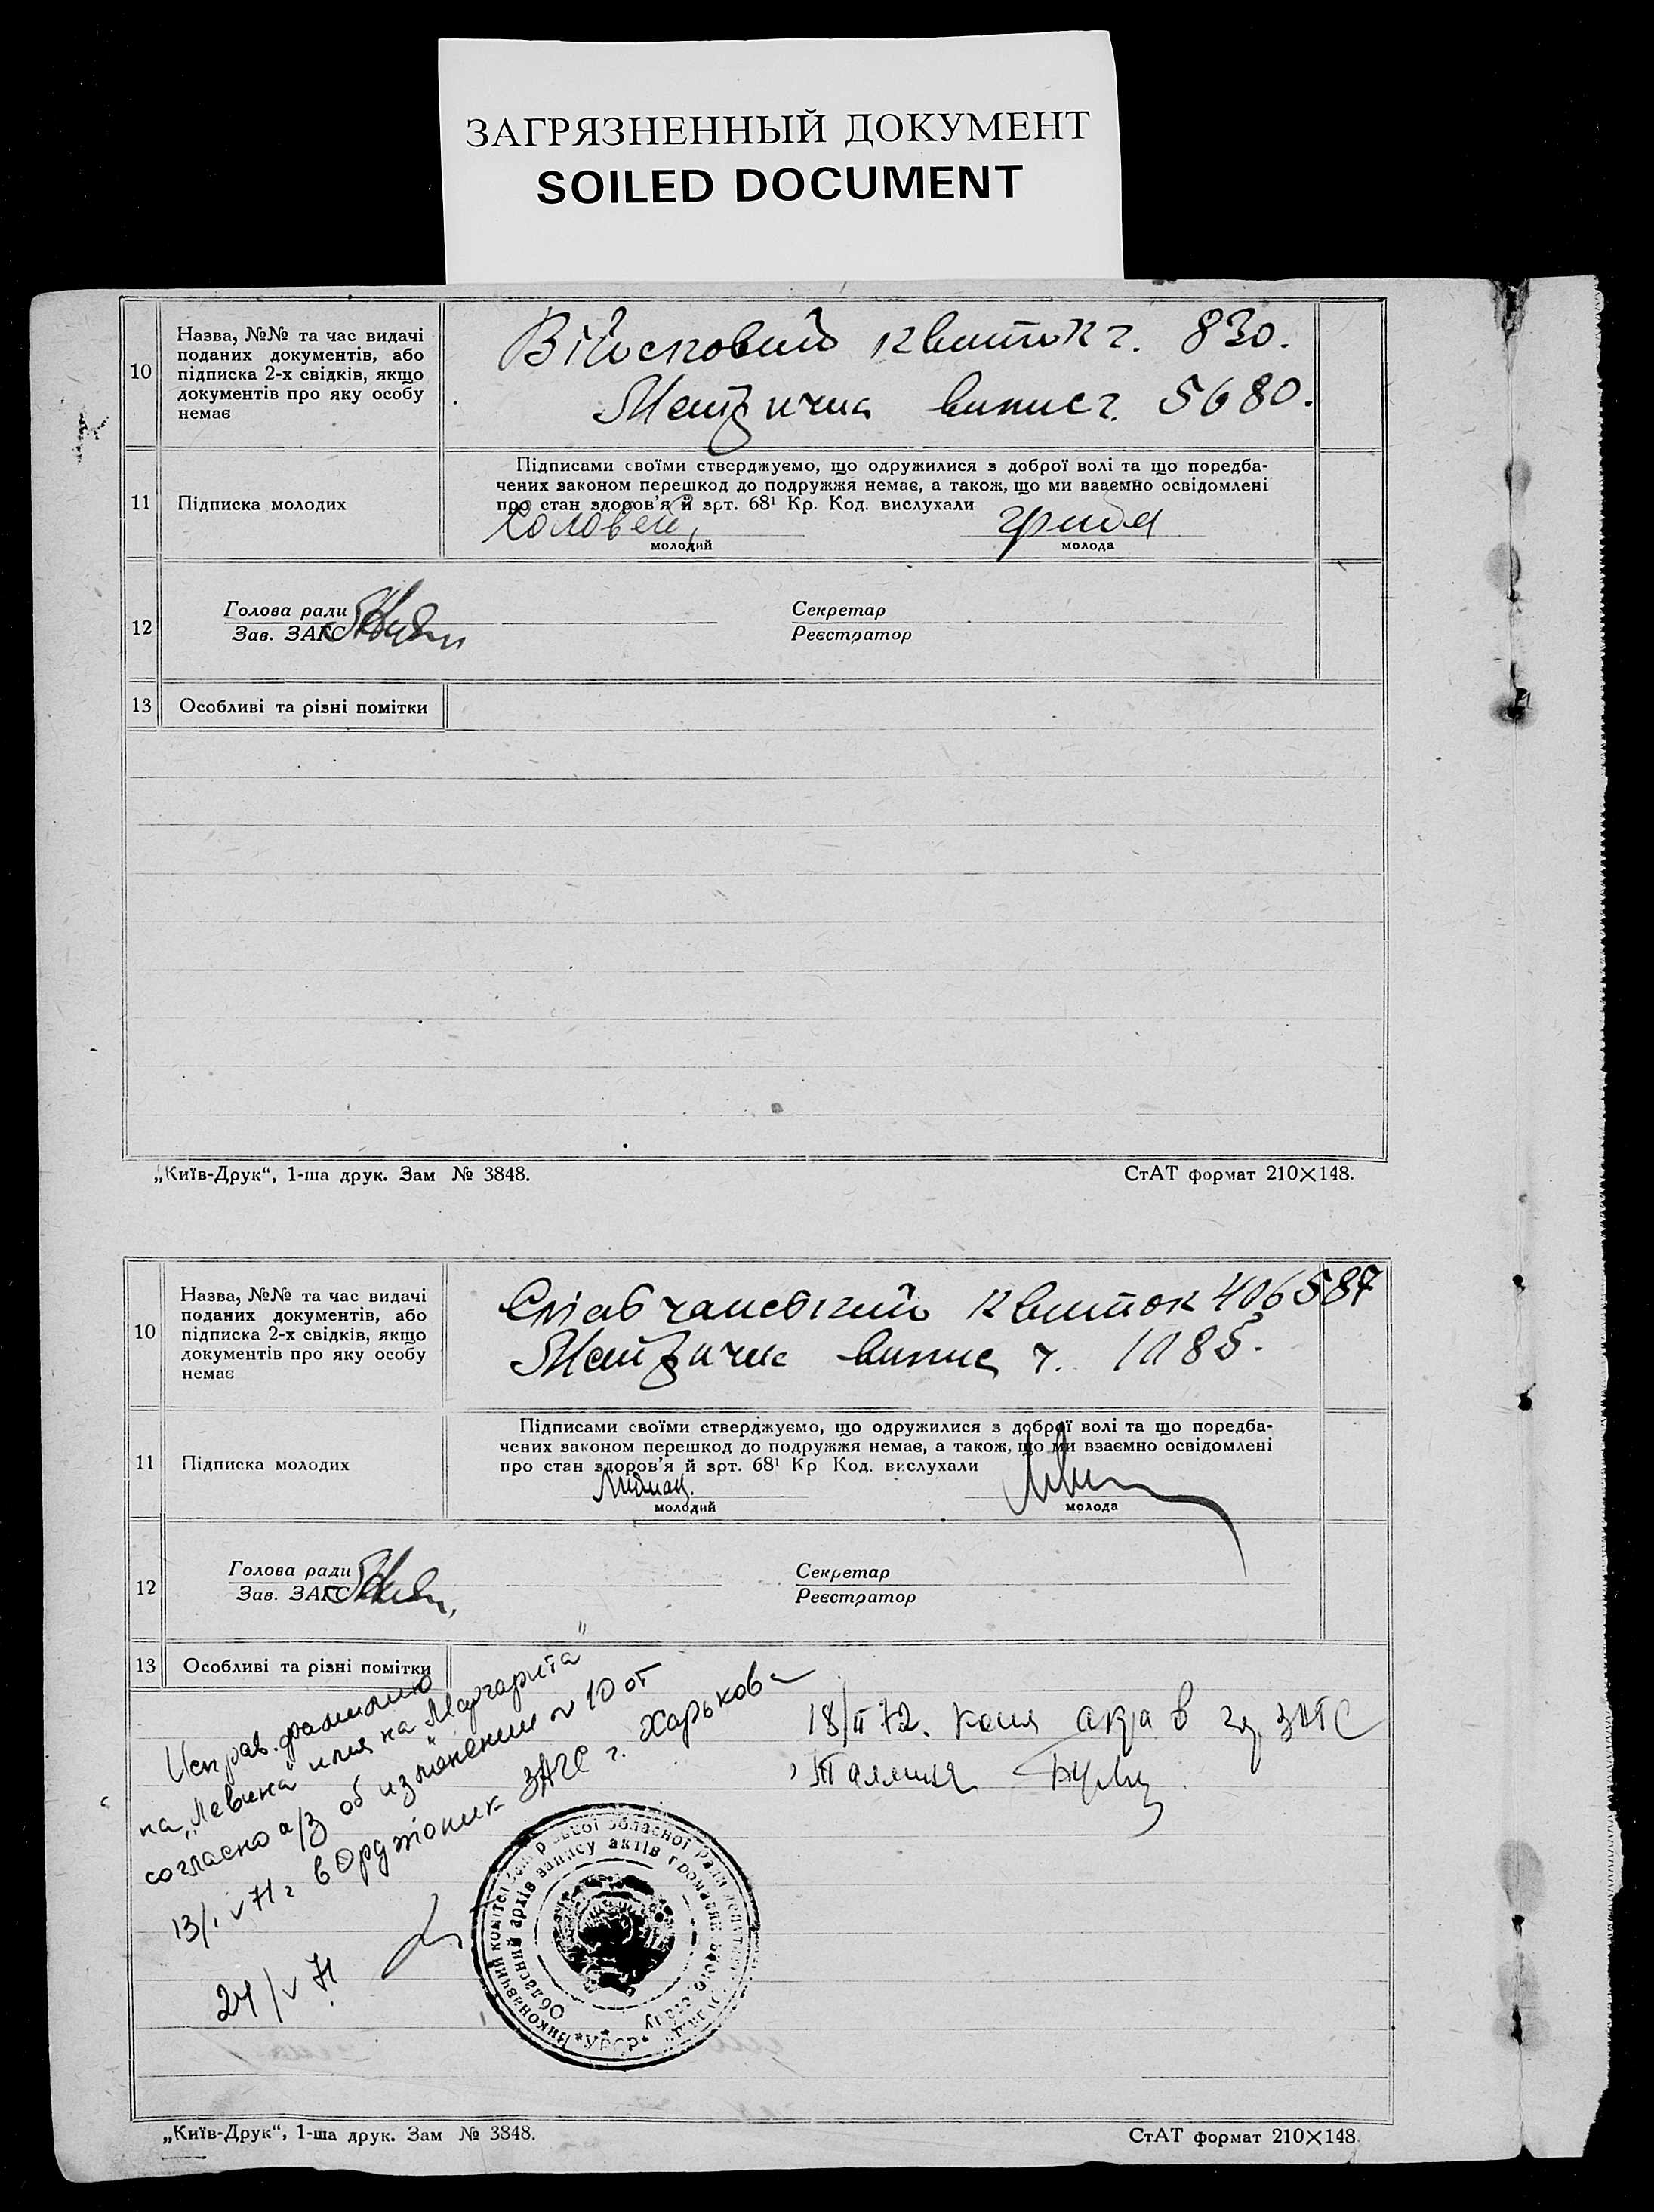 ЗАГРЯЗНЕННЫЙ ДОКУМЕНТ
SOILED DOCUMENT
10
Назва, №№ та час видачі
поданих документів, або
підписка 2-х свідків, якщо
документів про яку особу
немає
Військовий квиток ч. 830.
Метрична випис ч. 5680.
11
Підписка молодих
Підписами своїми стверджуємо, що одружилися з доброї волі та що поредба-
чених законом перешкод до подружжя немає, а також, що ми взаємно освідомлені
про стан здоров’я й арт. 68¹ Кр. Код. вислухали
Соловей
молодий
молода
12
Голова ради
Зав. ЗАГС
Секретар
Реєстратор
13
Особливі та різні помітки
„Київ-Друк“, 1-ша друк. Зам № 3848.
СтАТ формат 210×148.
10
Назва, №№ та час видачі
поданих документів, або
підписка 2-х свідків, якщо
документів про яку особу
немає
квиток 406587
Метрична випис ч. 1085.
11
Підписка молодих
Підписами своїми стверджуємо, що одружилися з доброї волі та що поредба-
чених законом перешкод до подружжя немає, а також, що ми взаємно освідомлені
про стан здоров’я й арт. 68¹ Кр Код. вислухали
молодий
молода
12
Голова ради
Зав. ЗАГС
Секретар
Реєстратор
13
Особливі та різні помітки
Исправ. фамилию
на „Левина“ имя на „Маргарита“
согласно а/з об изменении № 10 от
13/IV 71 г в Орджоник ЗАГС г. Харькова
24/V 71
18/II 72. копия акта в ЗАГС
Таллина
Виконавчий комітет обласної ради депутатів
Обласний архів запису актів громадян стану
*УРСР*
„Київ-Друк“, 1-ша друк. Зам № 3848.
СтАТ формат 210×148.